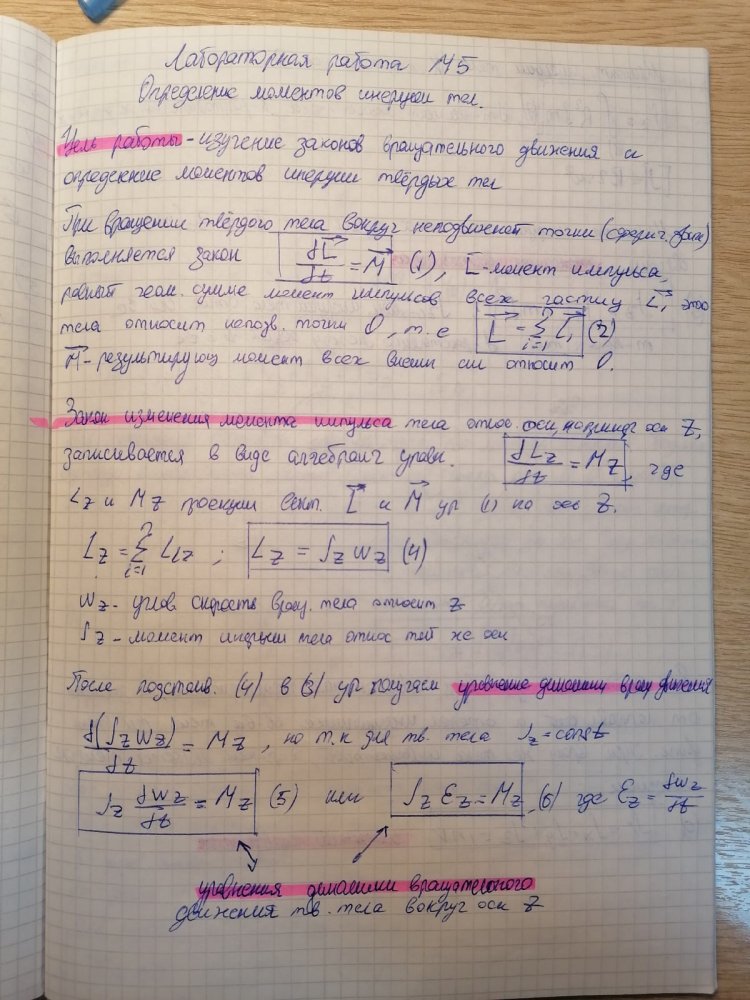 Лабораторная работа М5
Определение моментов инерции тел.
Цель работы - изучение законов вращательного движения и
определение моментов инерции твёрдых тел
При вращении твёрдого тела вокруг неподвижной точки (сферич. движ)
выполняется закон dL⃗/dt = M⃗ (1), L⃗ - момент импульса,
равный геом. сумме момент импульсов всех частиц L⃗i этого
тела относит неподв. точки О, т.е L⃗ = Σ(i=1, n) L⃗i (2)
M⃗ - результирующ момент всех внешн сил относит О.
Закон изменения момента импульса тела относ. оси, например оси Z,
записывается в виде алгебраич уравн. dLz/dt = Mz, где
Lz и Mz проекции вект. L⃗ и M⃗ ур (1) на ось Z.
Lz = Σ(i=1, n) Liz ; Lz = Jz wz (4)
wz - углов. скорость вращ. тела относит z
Jz - момент инерции тела относ той же оси
После подставв. (4) в (3) ур получаем уравнение динамики вращ движения
d(Jz wz)/dt = Mz, но т.к для тв. тела Jz = const
Jz dwz/dt = Mz (5) или Jz Ez = Mz, (6) где Ez = dwz/dt
уравнения динамики вращательного
движения тв. тела вокруг оси Z